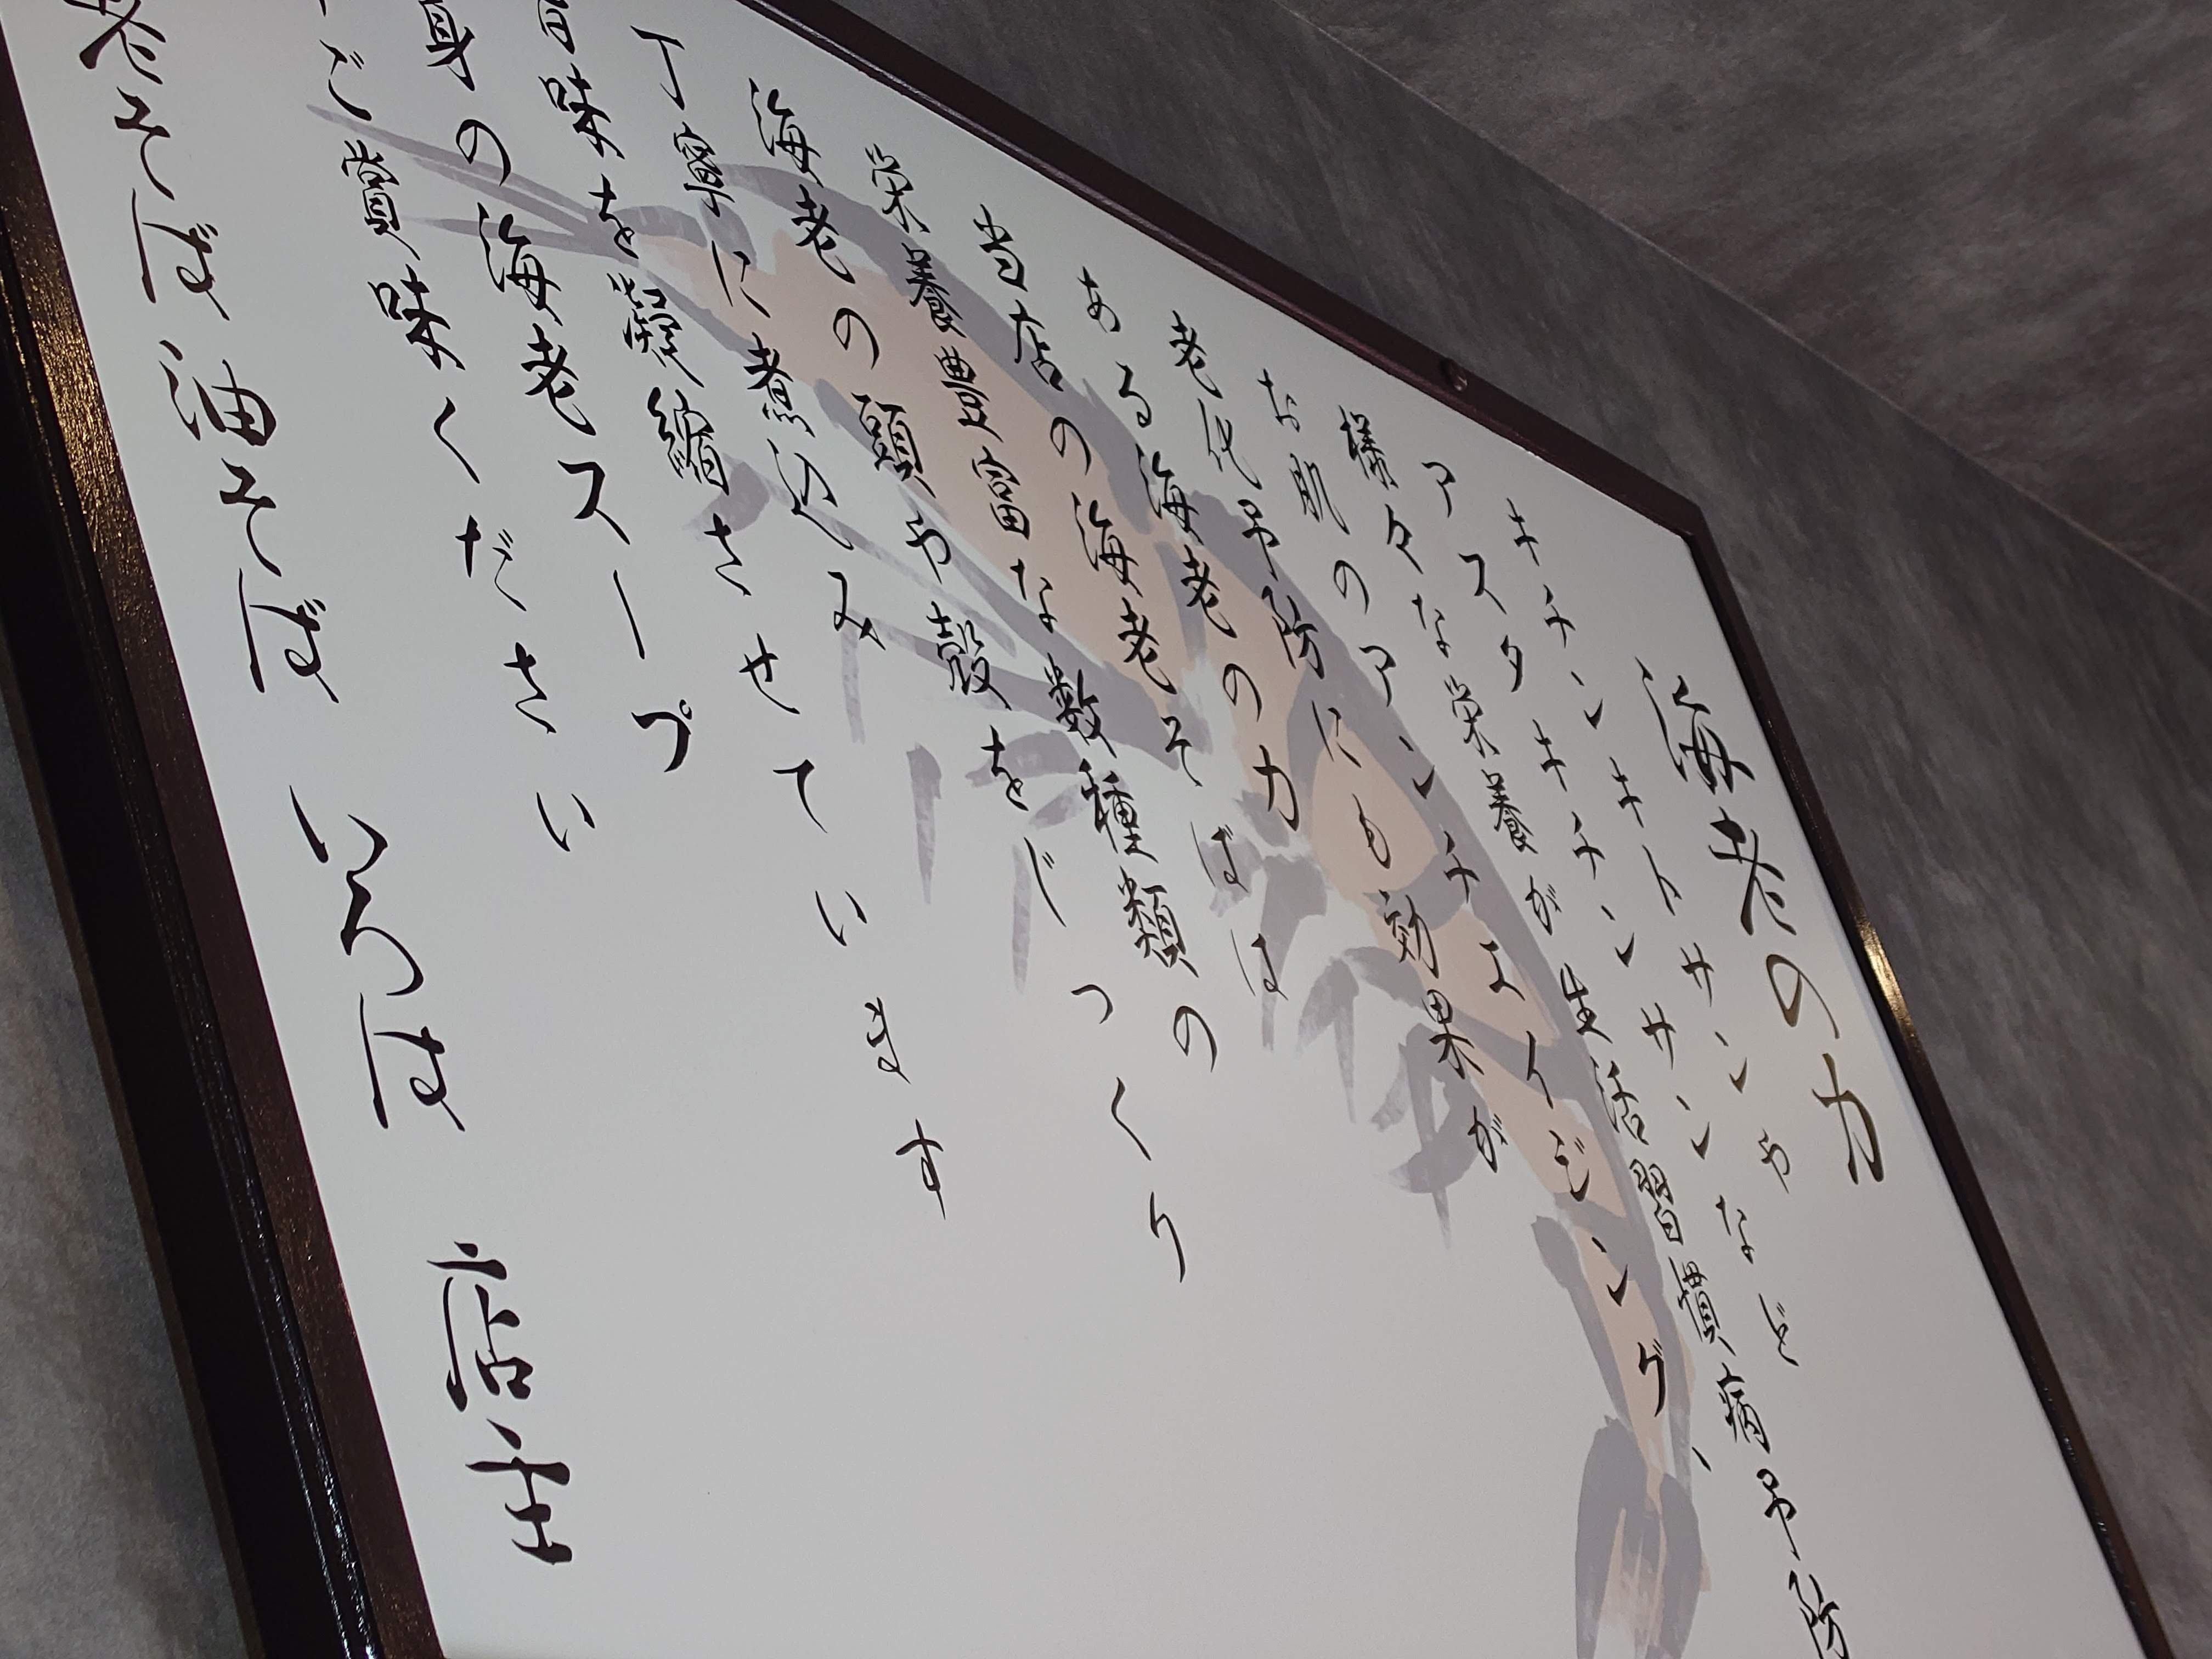 海老の力
キチンキトサンやなど
アスタキチンサン
様々な栄養が生活習慣病予防
お肌のアンチエイジング、
老化予防にも効果が
ある海老の力
当店の海老そばは
栄養豊富な数種類の
海老の頭や殻をじっくり
丁寧に煮込み
旨味を凝縮させています
身の海老スープ
ご賞味ください
老そば油そば いろは 店主